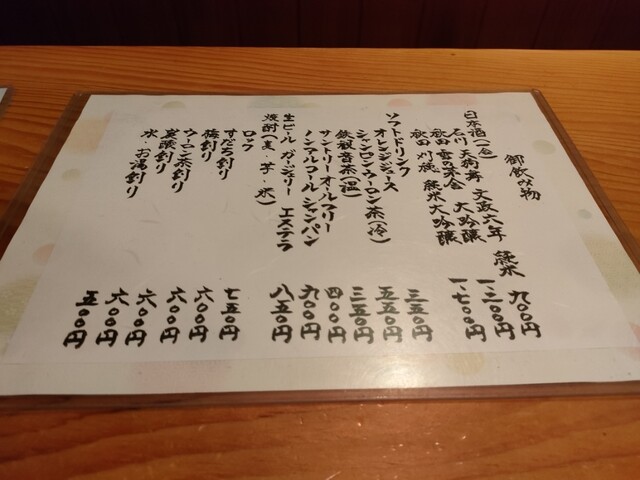 御飲み物
日本酒(一合)
石川 天狗舞 文政六年 純米 九〇〇円
秋田 雪の茅舎 大吟醸 一、三〇〇円
秋田 刈穂 純米大吟醸 一、七〇〇円
ソフトドリンク
オレンジジュース 三五〇円
シャンロンウーロン茶(冷) 五五〇円
鉄観音茶(温) 三五〇円
サントリーオールフリー 四〇〇円
ノンアルコールシャンパン 九〇〇円
生ビール ガージェリー エステラ 八五〇円
焼酎(麦・芋・米)
ロック 七五〇円
すだち割り 六〇〇円
梅割り 六〇〇円
ウーロン茶割り 六〇〇円
炭酸割り 六〇〇円
水・お湯割り 五〇〇円